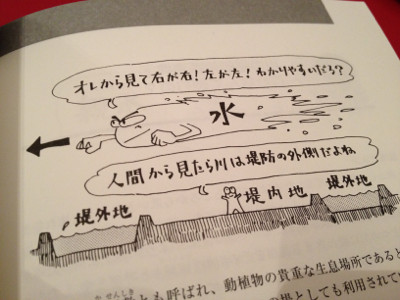 オレから見て右が右！左が左！わかりやすいだろ？
水
人間から見たら川は堤防の外側だよね
堤外地
堤内地
堤外地
も呼ばれ、動植物の貴重な生息場所であると
としても利用されてい